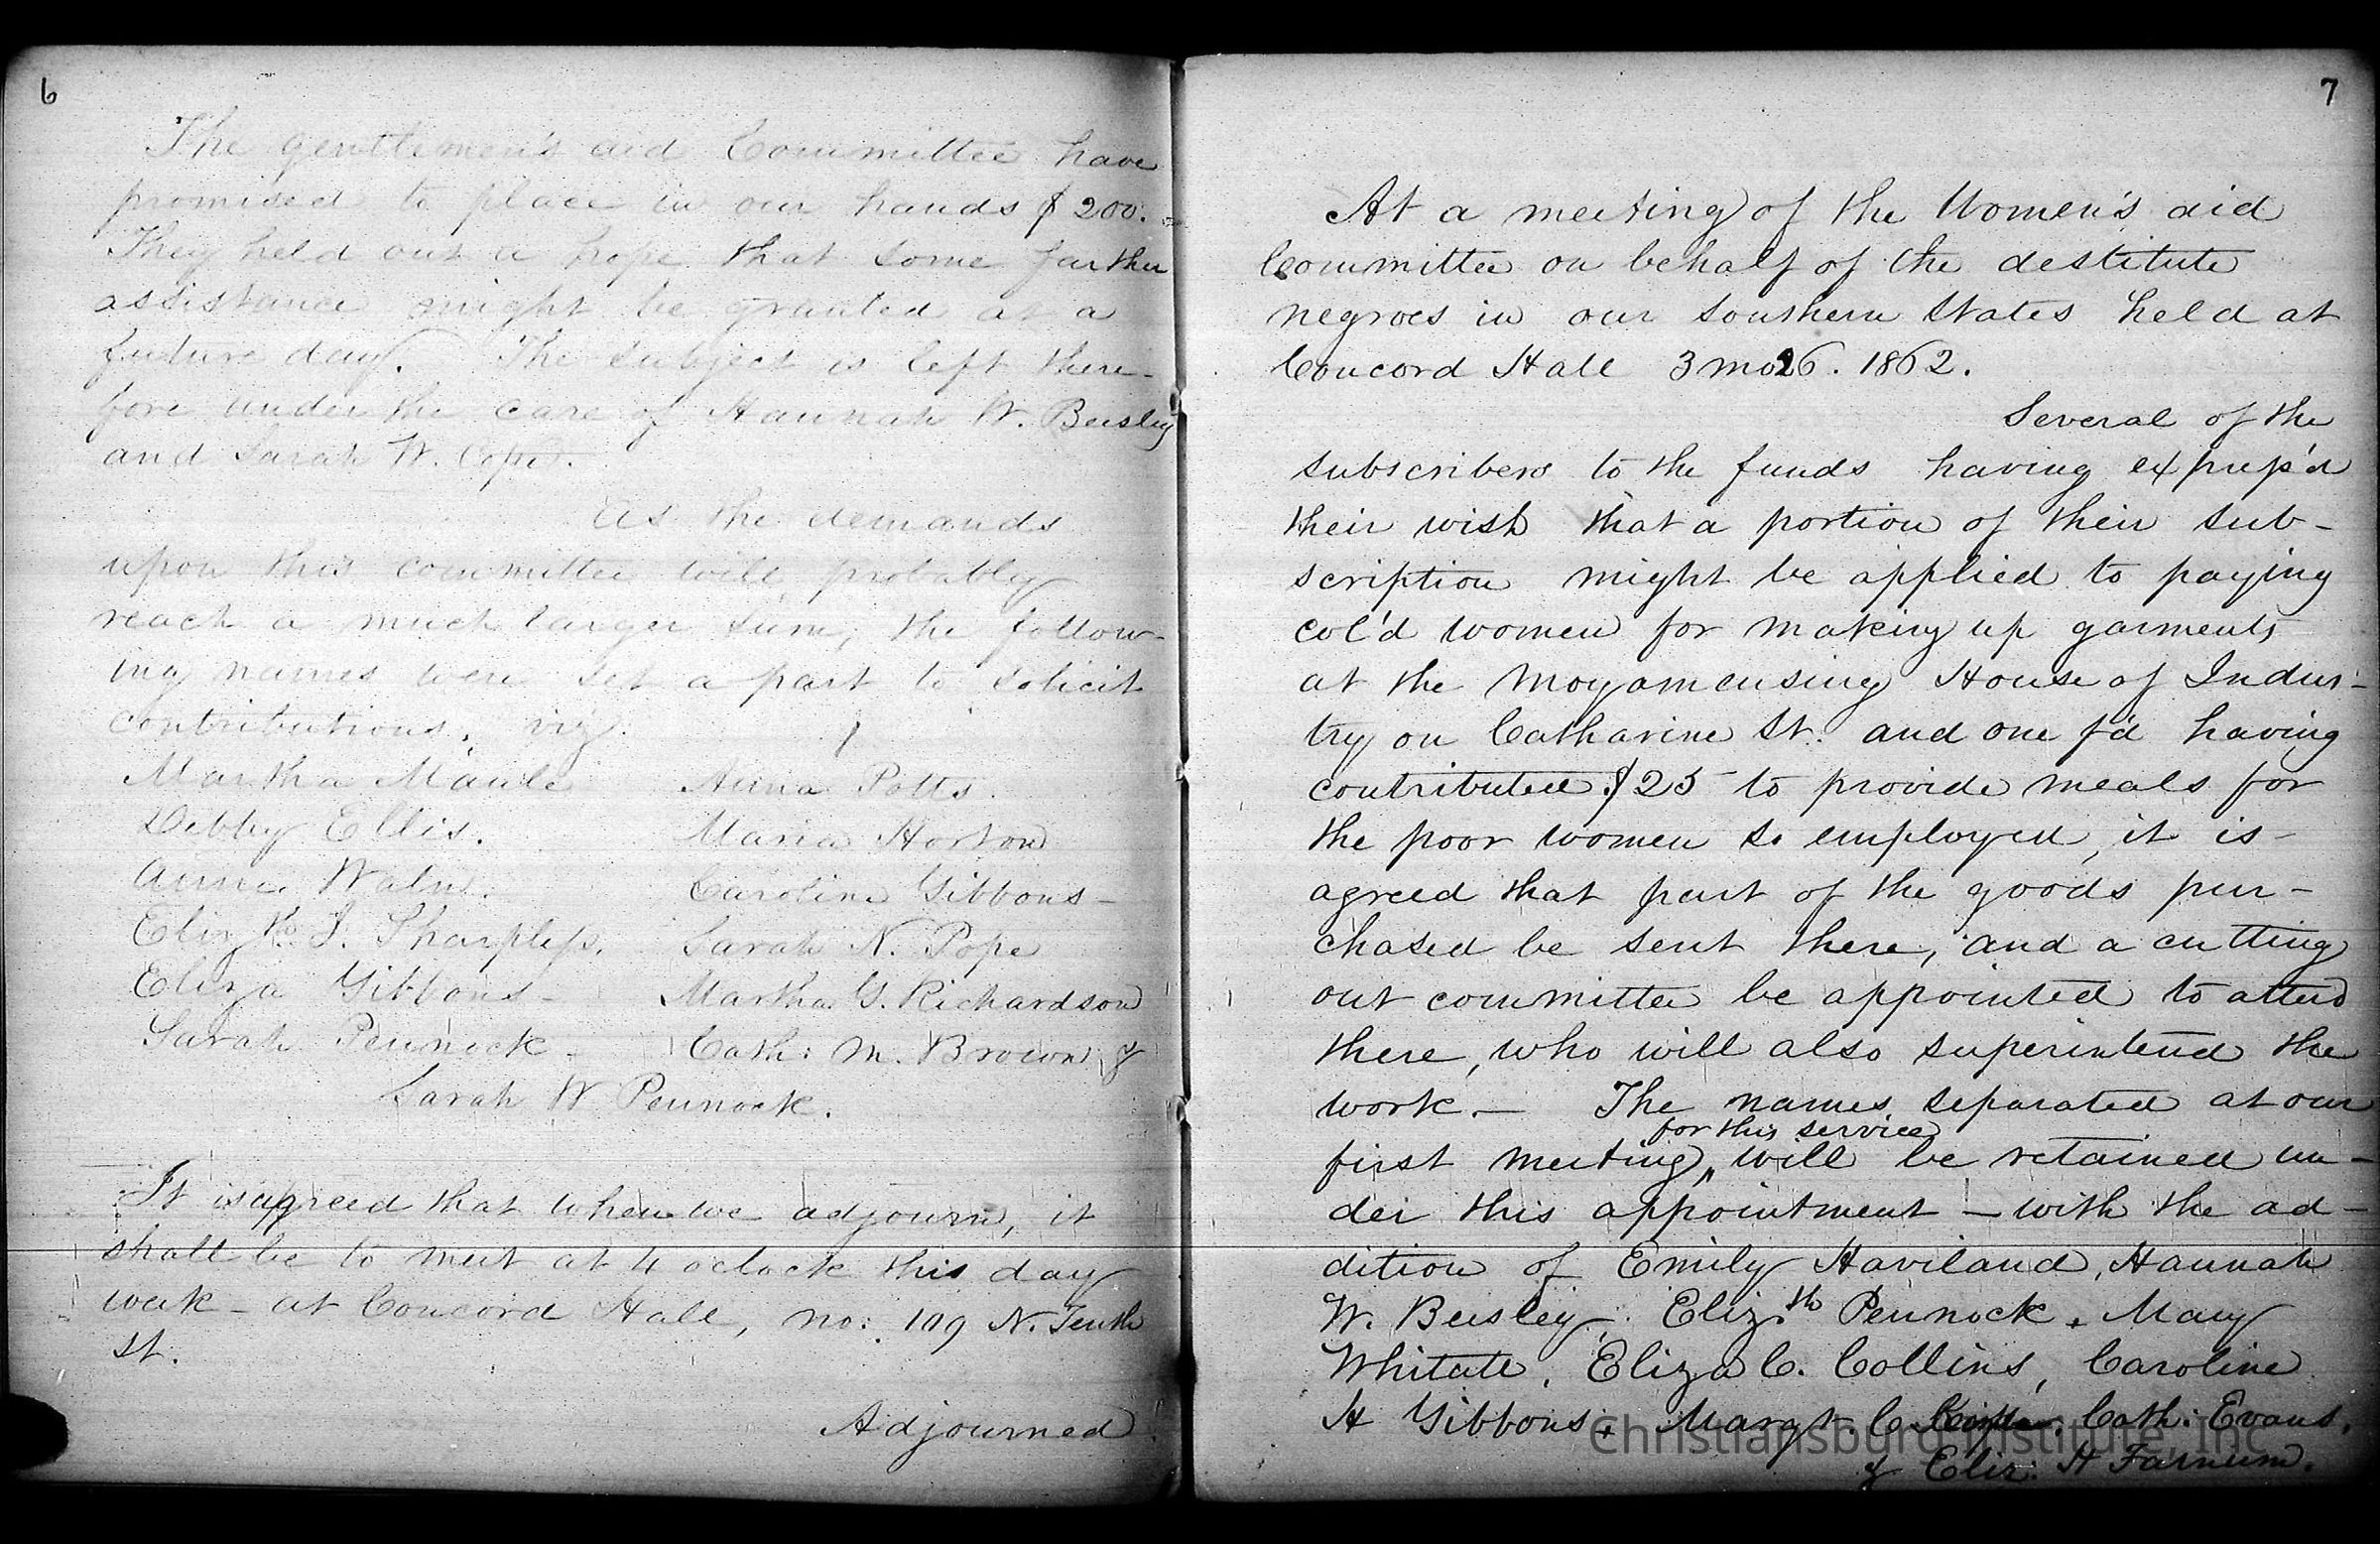 6
The gentlemen's aid Committee have
promised to place in our hands $200.
They held out a hope that some farther
assistance might be granted at a
future day. The subject is left there-
fore under the care of Hannah W. Beesley
and Sarah W. Cope.
As the demands
upon this committee will probably
reach a much larger sum, the follow-
ing names were set a part to solicit
contributions, viz.
Martha Maule Anna Potts.
Debby Ellis. Maria Horton
Anna Waln. Caroline Gibbons-
Elizth. J. Sharpless. Sarah N. Pope
Eliza Gibbons- Martha G. Richardson
Sarah Pennock- Cath: M. Brown &
Sarah W Pennock.
It is agreed that when we adjourn, it
shall be to meet at 4 oclock this day
week - at Concord Hall, no: 109 N. Tenth
St.
Adjourned
7
At a meeting of the Women's aid
Committee on behalf of the destitute
negroes in our Southern States held at
Concord Hall 3 mo 26. 1862.
Several of the
subscribers to the funds having express'd
their wish that a portion of their sub-
scription might be applied to paying
col'd women for making up garments
at the Moyamensing House of Indus-
try on Catharine St. and one f'd having
contributed $25 to provide meals for
the poor women so employed, it is
agreed that part of the goods pur-
chased be sent there, and a cutting
out committee be appointed to attend
there, who will also superintend the
work.- The names separated at our
for this service
first meeting, will be retained un-
der this appointment - with the ad-
dition of Emily Haviland, Hannah
W. Beesley, Elizth Pennock, Mary
Whitall, Eliza C. Collins, Caroline
H Gibbons, Margt. C Cope, Cath: Evans,
& Eliz: H Farnum.
Christiansburg Institute, Inc